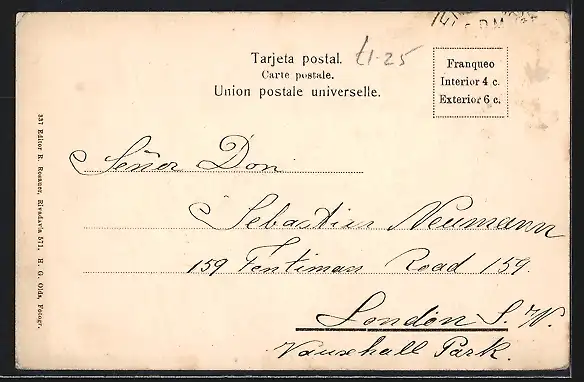 Tarjeta postal.
£1-25
Carte postale.
Union postale universelle.
Franqueo
Interior 4 c.
Exterior 6 c.
Señor Don
Sebastian Neumann
159 Fentiman Road 159
London S.W.
Vauxhall Park.
337 Editor R. Rosauer, Rivadavia 571. H. G. Olds, Fotogr.